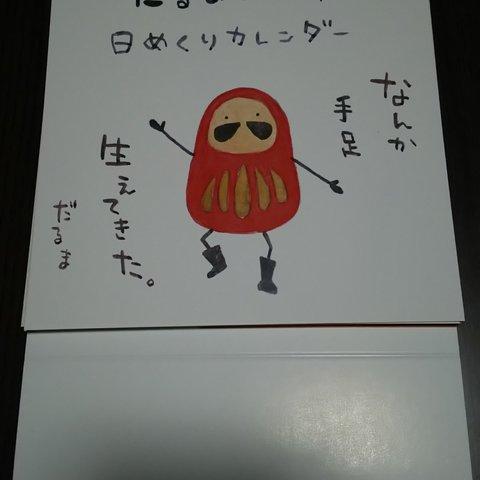 日めくりカレンダー
なんか
手足
生えてきた。
だるま